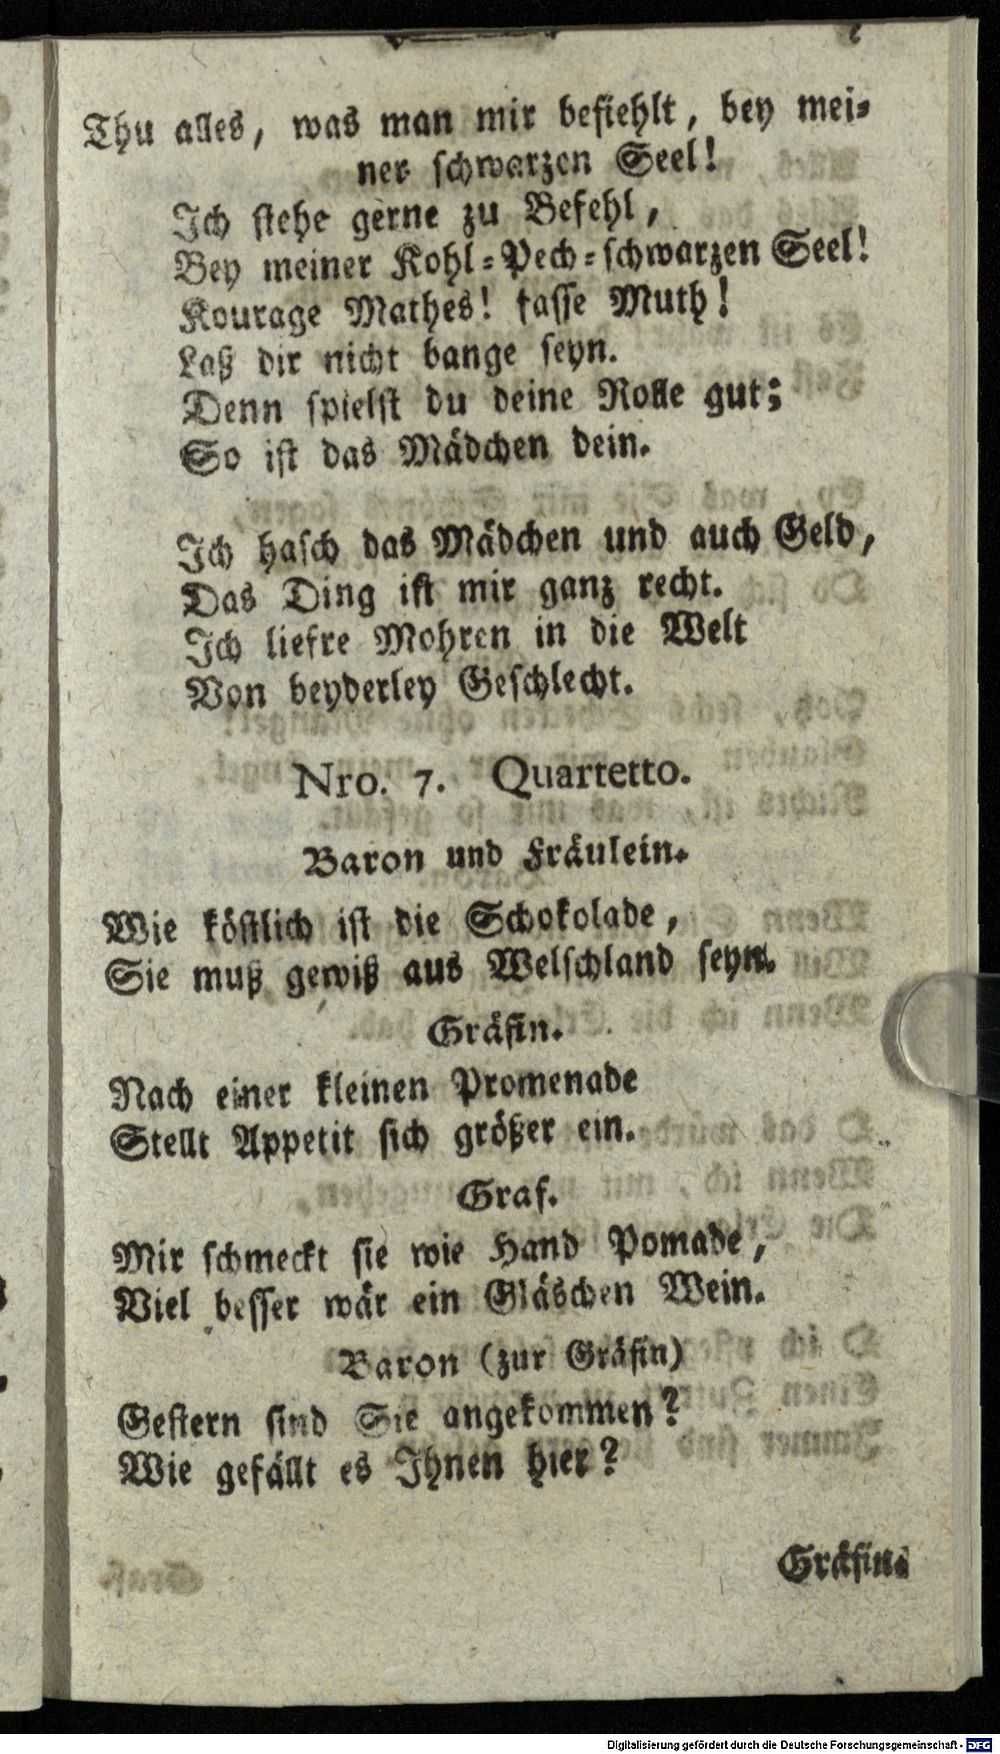 Thu alles, was man mir befiehlt, bey mei-
ner schwarzen Seel!
Ich stehe gerne zu Befehl,
Bey meiner Kohl-Pech-schwarzen Seel!
Kourage Mathes! fasse Muth!
Laß dir nicht bange seyn.
Denn spielst du deine Rolle gut;
So ist das Mädchen dein.
Ich hasch das Mädchen und auch Geld,
Das Ding ist mir ganz recht.
Ich liefre Mohren in die Welt
Von beyderley Geschlecht.
Nro. 7. Quartetto.
Baron und Fräulein.
Wie köstlich ist die Schokolade,
Sie muß gewiß aus Welschland seyn.
Gräfin.
Nach einer kleinen Promenade
Stellt Appetit sich größer ein.
Graf.
Mir schmeckt sie wie Hand Pomade,
Viel besser wär ein Gläschen Wein.
Baron (zur Gräfin)
Gestern sind Sie angekommen?
Wie gefällt es Ihnen hier?
Gräfin.
Digitalisierung gefördert durch die Deutsche Forschungsgemeinschaft - DFG